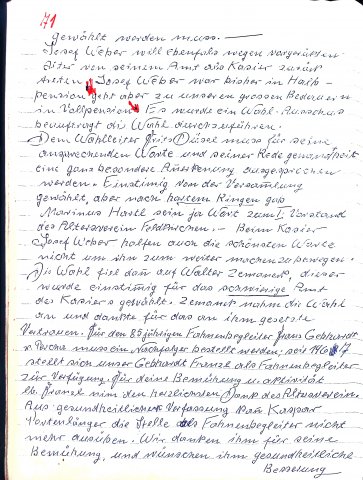 71
gewählt werden muss. —
Josef Weber will ebenfals wegen vorgerükten
Alter von seinem Amt als Kasier zurück
treten. Josef Weber war bisher in Halb-
pension geht aber zu unseren grossen Bedauern
in Vollpension. Es wurde ein Wahl-Ausschus
beauftragt die Wahl durchzuführen.
Dem Wahlleiter Düsel muss für seine
ansprechenden Worte und seiner Rede gewandtheit
eine ganz besondere Anerkenung ausgesprochen
werden. Einstimig von der Versamlung
gewählt, aber nach hartem Ringen gab
Marinus Hartl sein ja Wort zum 1. Vorstand
des Altersverein Feldkirchen. — Beim Kasier
Josef Weber halfen auch die schönsten Worte
nicht um ihn zum weiter machen zu bewegen.
Die Wahl fiel dan auf Walter Zemanek, dieser
wurde einstimig für das schwierige Amt
des Kasiers gewählt. Zemanek nahm die Wahl
an und dankte für das an ihm gesetzte
Vertrauen. Für den 85 jährigen Fahnenbegleiter Franz Gebhardt
muss ein Nachfolger bestellt werden, seit
stellt sich unser Gebhardt Franzl als Fahnenbegleiter
zur Verfügung. Für deine Bemühung u. aktivität
lb. Franzl nim den herzlichsten Dank des Altersvereins.
Aus gesundheitlicher Verfassung kan Kaspar
die Stelle als Fahnenbegleiter nicht
mehr ausüben. Wir danken ihm für seine
Bemühung, und wünschen ihm gesundheitliche
Besserung